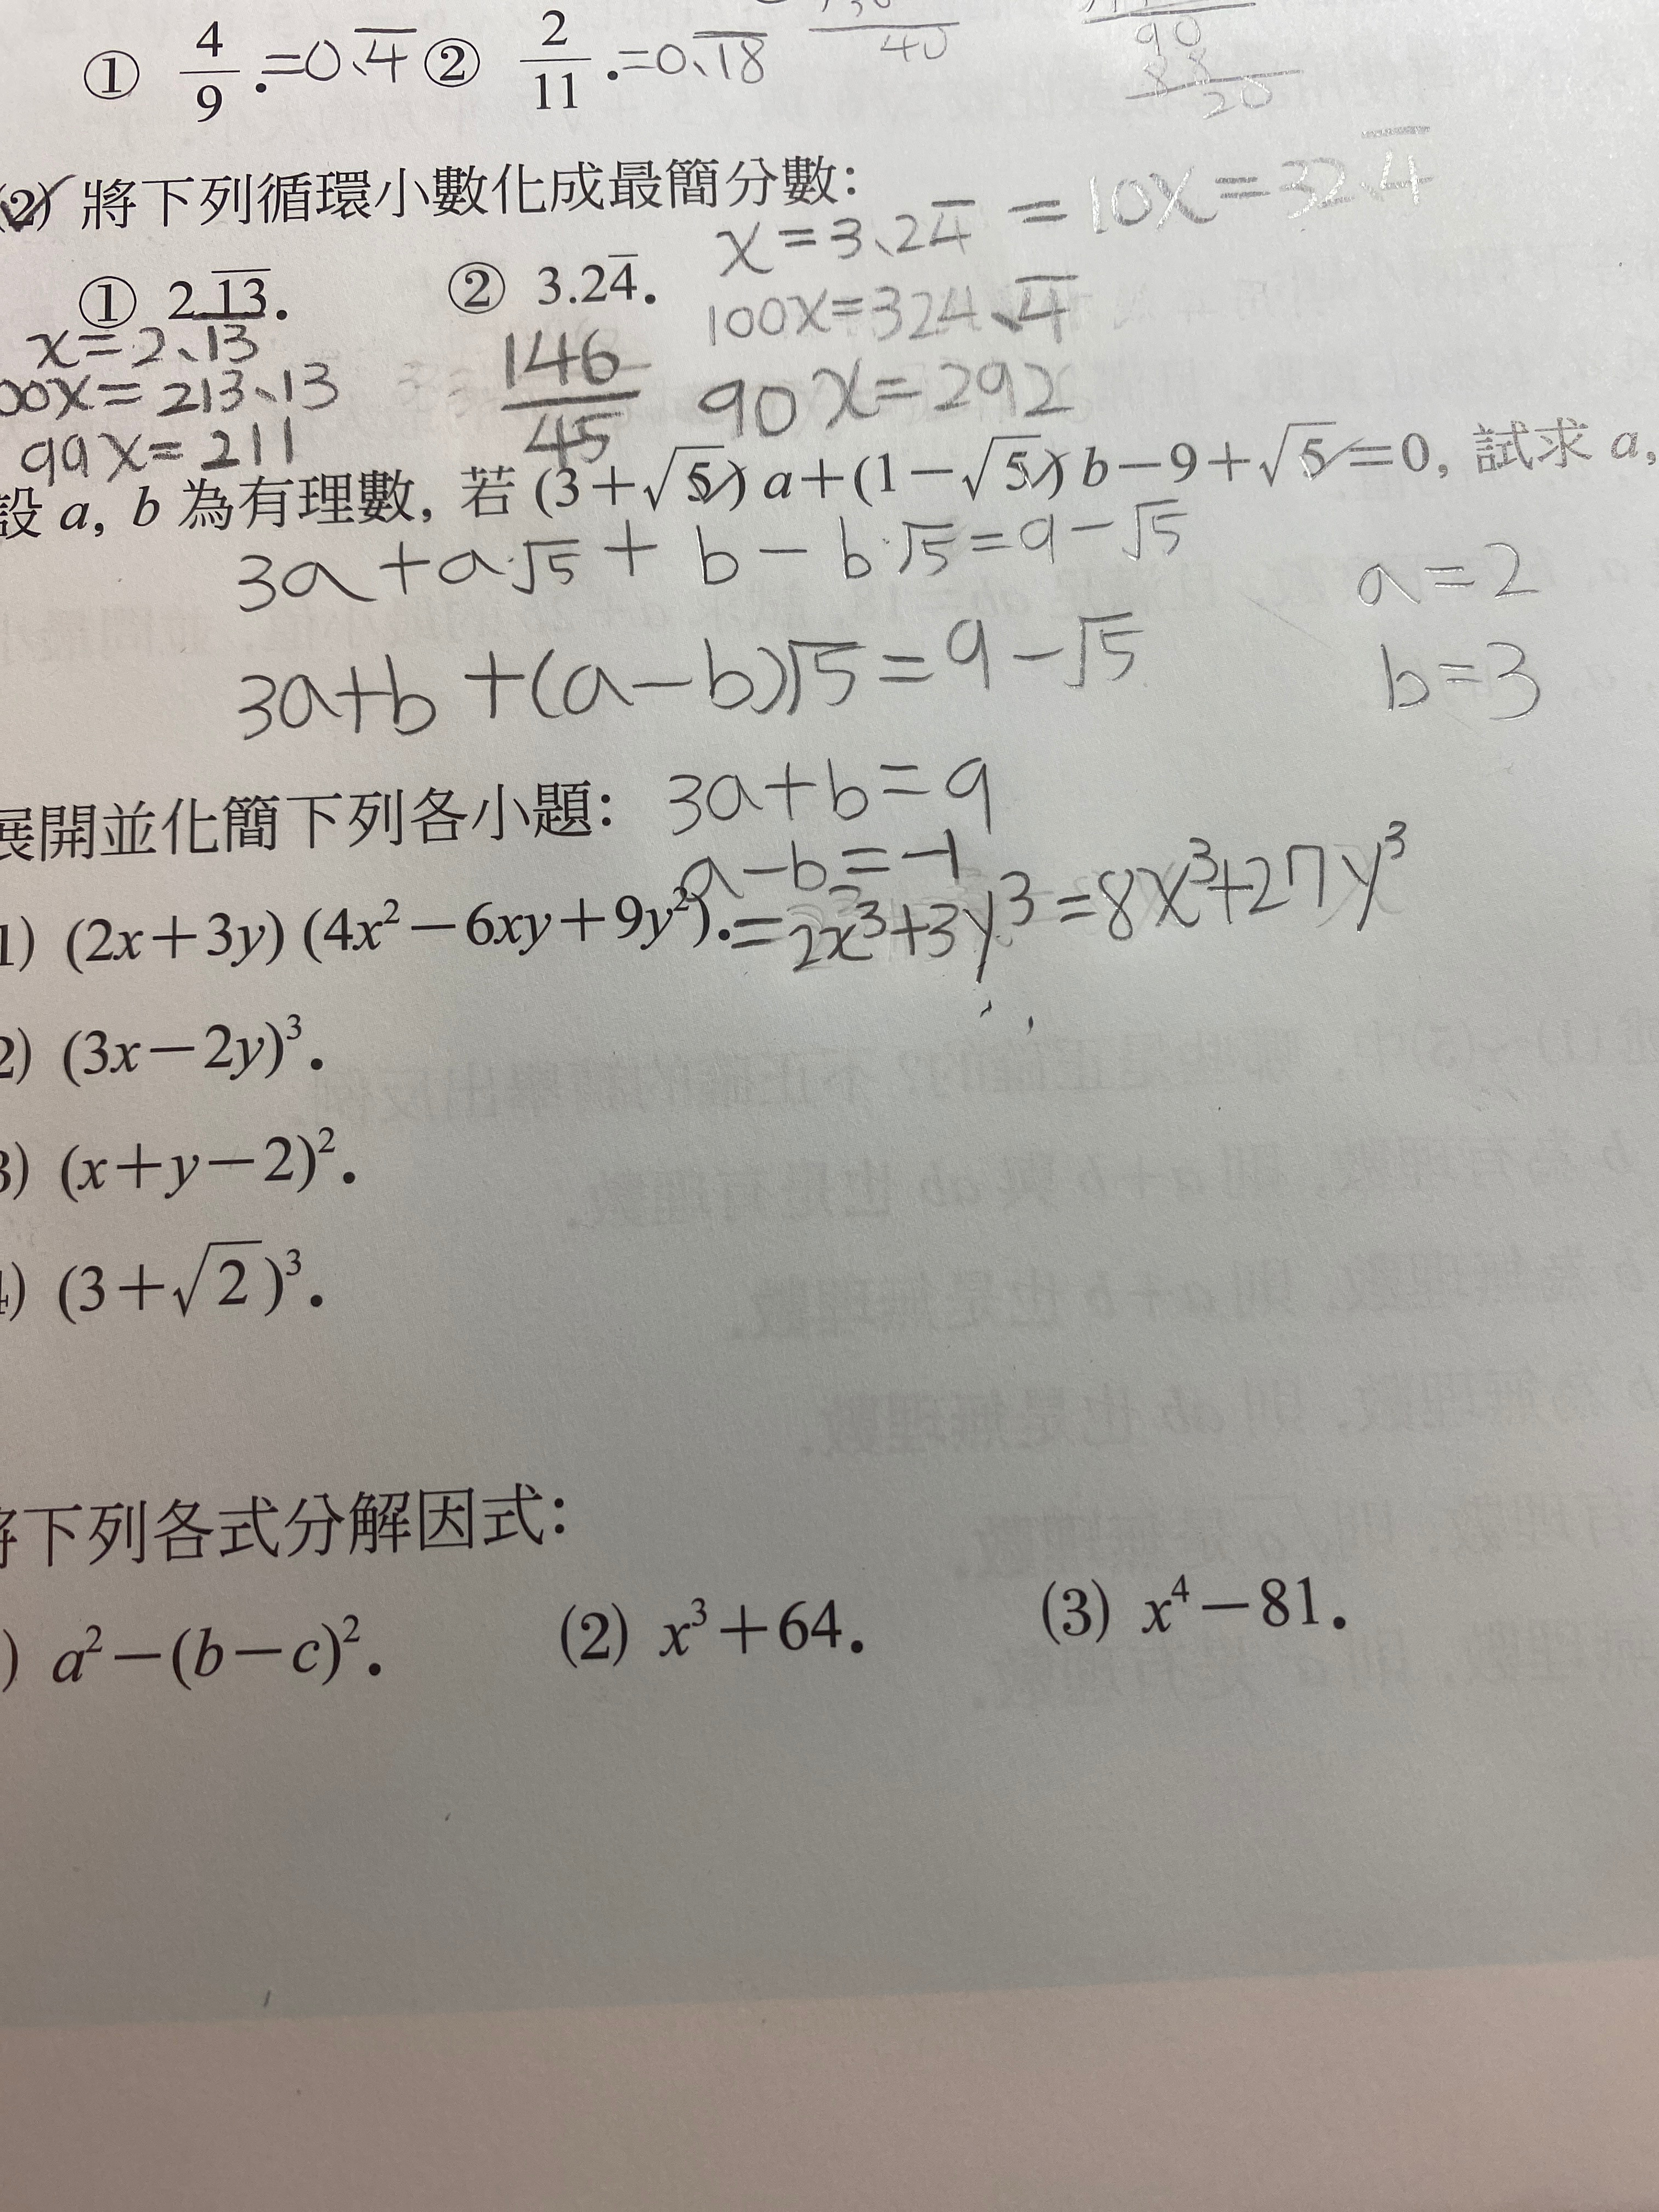 ① 4/9.=0.4̅ ② 2/11.=0.1̅8̅ 40
90
88
20
(2) 將下列循環小數化成最簡分數：
x=3.24̅ = 10x=32.4̅
① 2.1̅3̅. ② 3.24̅.
x=2.1̅3̅ 100x=324.4̅
00x=213.13 146/45 90x=292
99x=211
設 a, b 為有理數, 若 (3+√5) a+(1−√5) b−9+√5=0, 試求 a,
3a+a·√5+b−b·√5=9−√5
a=2
3a+b+(a−b)√5=9−√5
b=3
3a+b=9
展開並化簡下列各小題：
a−b=−1
1) (2x+3y) (4x²−6xy+9y²).=2x³+3y³=8x³+27y³
2) (3x−2y)³.
3) (x+y−2)².
4) (3+√2)³.
將下列各式分解因式：
) a²−(b−c)². (2) x³+64. (3) x⁴−81.